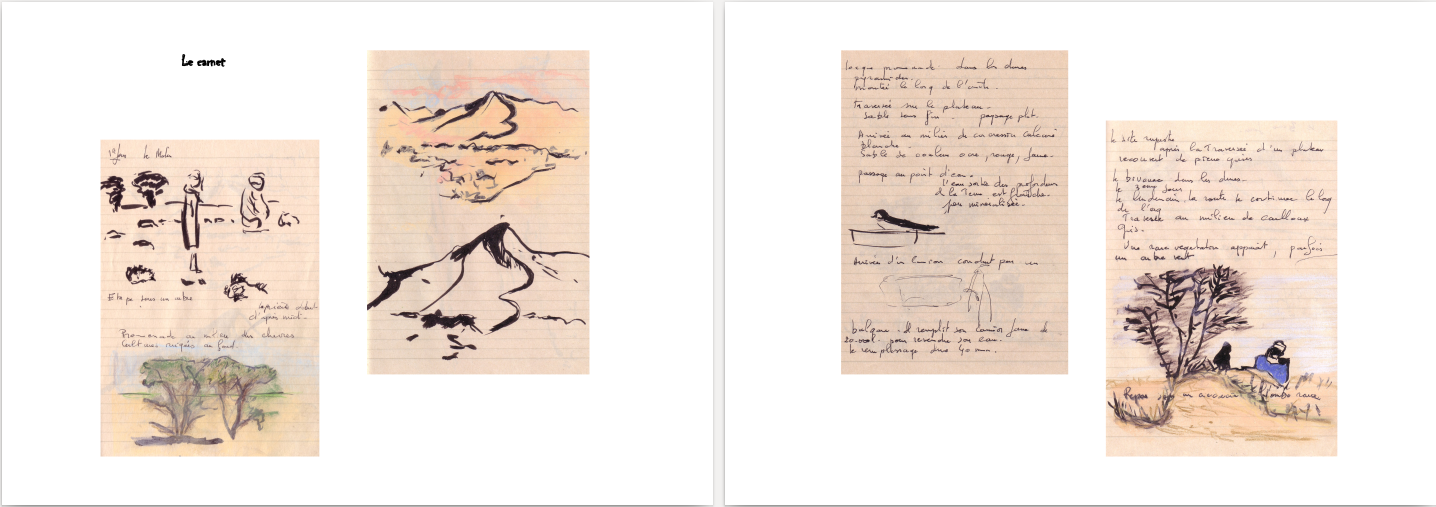 Le carnet
1er jour le Matin
Etape sous un arbre
d'après midi.
Promenade au milieu des chèvres
Cultures irriguées au fond
longue promenade dans les dunes
pyramides.
montée le long de l'arête.
Traversée sur le plateau.
sable sans fin. paysage plat.
Arrivée au milieu de concession calcaire
blanche.
Sable de couleur ocre, rouge, jaune.
passage au point d'eau.
l'eau sortie des profondeurs
de la Terre est fraîche.
peu minéralisée.
Arrivée d'un camion conduit par un
. Il remplit son camion jaune de
pour revendre son eau.
le remplissage dure 40 mn.
le site rupestre
après la Traversée d'un plateau
recouvert de pierres grises
le bivouac dans les dunes.
le 3eme jour
le lendemain, la route se continue le long
de l'oued
Traversée au milieu de cailloux
gris.
Une rare végétation apparait, parfois
un arbre vert
Repas sous un acacia l'ombre rare